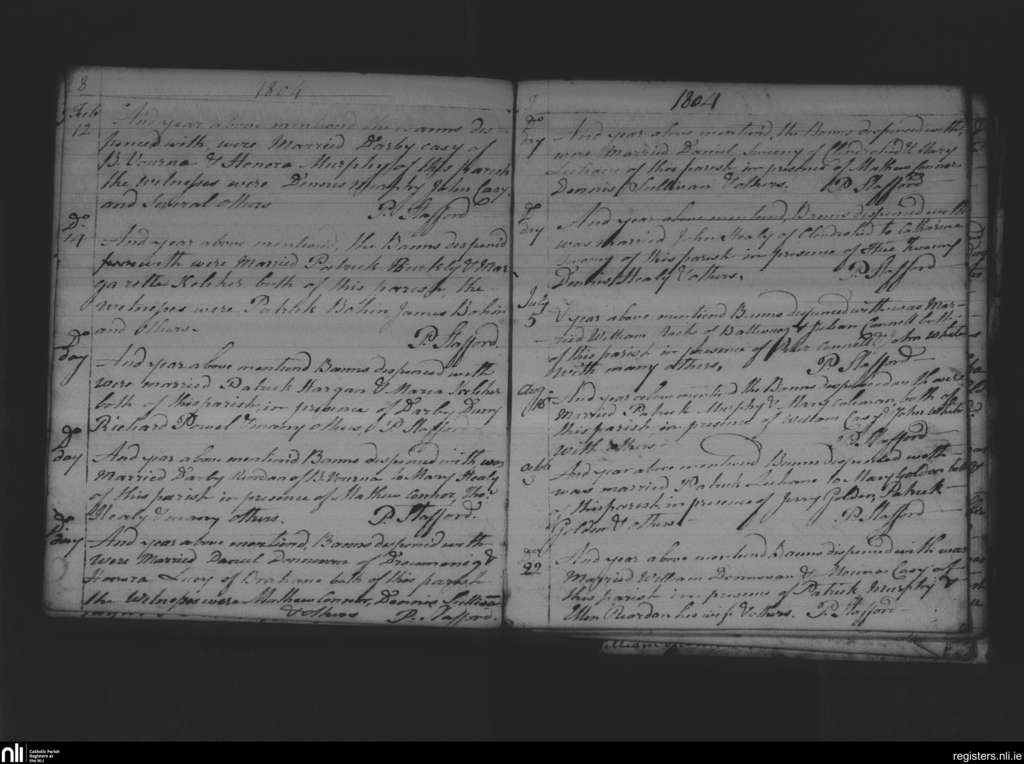 8
1804
Feb
12
And year above mentiond the Banns dis-
penced with, were Married Darby Casy of
& Honora Murphy of this parish
the witnesses were Dennis Murphy John Casy
and Several Others
P. Stafford
Do
14
And year above mentioned, the Banns dispenced
with were Married Patrick &
Keleher both of this parish, the
witnesses were Patrick Bohin James Bohin
and Others
P. Stafford
Do
day
And year above mentioned Banns dispenced with
were married Patrick Hargan & Maria Keleher
both of this parish, in presence of Darby
Richard Powel & many others, P Stafford
Do
day
And year above mentioned Banns dispenced with was
Married Darby Riordan of to Mary Healy
of this parish in presence of Mathew Connor, Thos
Healy & many others. P. Stafford.
Do
day
And year above mentiond, Banns dispenced with
were Married Daniel Donovan of &
Honora Lucy of both of this parish
the Witnesses were Mathew Connor, Dennis Sullivan
& others P. Stafford.
1804
Do
day
And year above mentiond, the Banns dispenced with,
were Married Daniel Sweeny of & Mary
of this parish in presence of Mathew Connor
Dennis Sullivan & others. P. Stafford
Do
day
And year above mentiond, Banns dispenced with
was married John Healy of to Catharine
of this parish in presence of
Dennis Healy & others. P. Stafford
July
5
& year above mentiond Banns dispenced with was Mar-
ried William of & Julian Connell both
of this parish in presence of Peter Connell & John White
With many others, P. Stafford
Aug
And year above mentiond the Banns dispenced with were
Married Patrick Murphy & Mary Coleman, both of
this parish in presence of William Casy, John White
with others
P. Stafford
5
And year above mentiond Banns dispenced with
was married Patrick to Mary Golden both
of this parish in presence of Jerry Golden, Patrick
Golden & others P. Stafford
22
And year above mentiond Banns dispenced with was
Married William Donnovan & Casy of
this parish in presence of Patrick Murphy &
Ellen Riordan his wife & others. P. Stafford
nli
Catholic Parish
Registers at
the NLI
registers.nli.ie